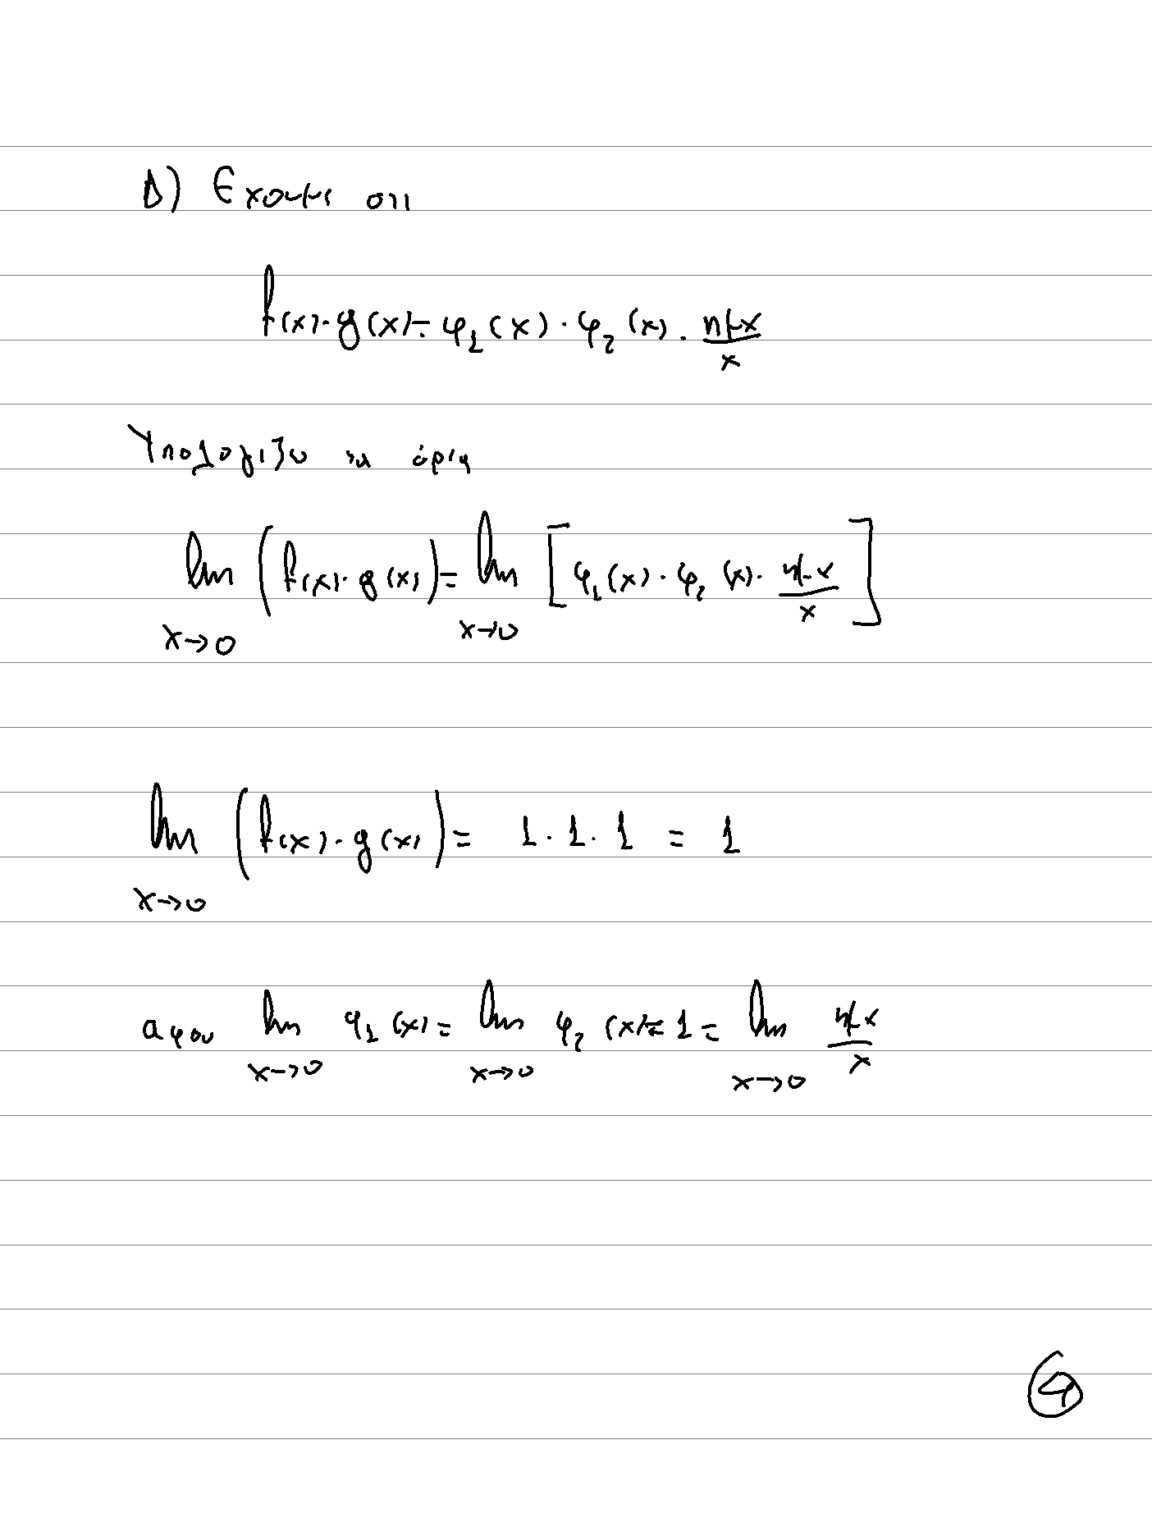 Δ) Εχουμε οτι
f(x)·g(x) = φ₁(x)·φ₂(x)·ημx/x
Υπολογιζω τα όρια
lim x→0 (f(x)·g(x)) = lim x→0 [φ₁(x)·φ₂(x)·ημx/x]
lim x→0 (f(x)·g(x)) = 1·1·1 = 1
αφου lim x→0 φ₁(x) = lim x→0 φ₂(x) = 1 = lim x→0 ημx/x